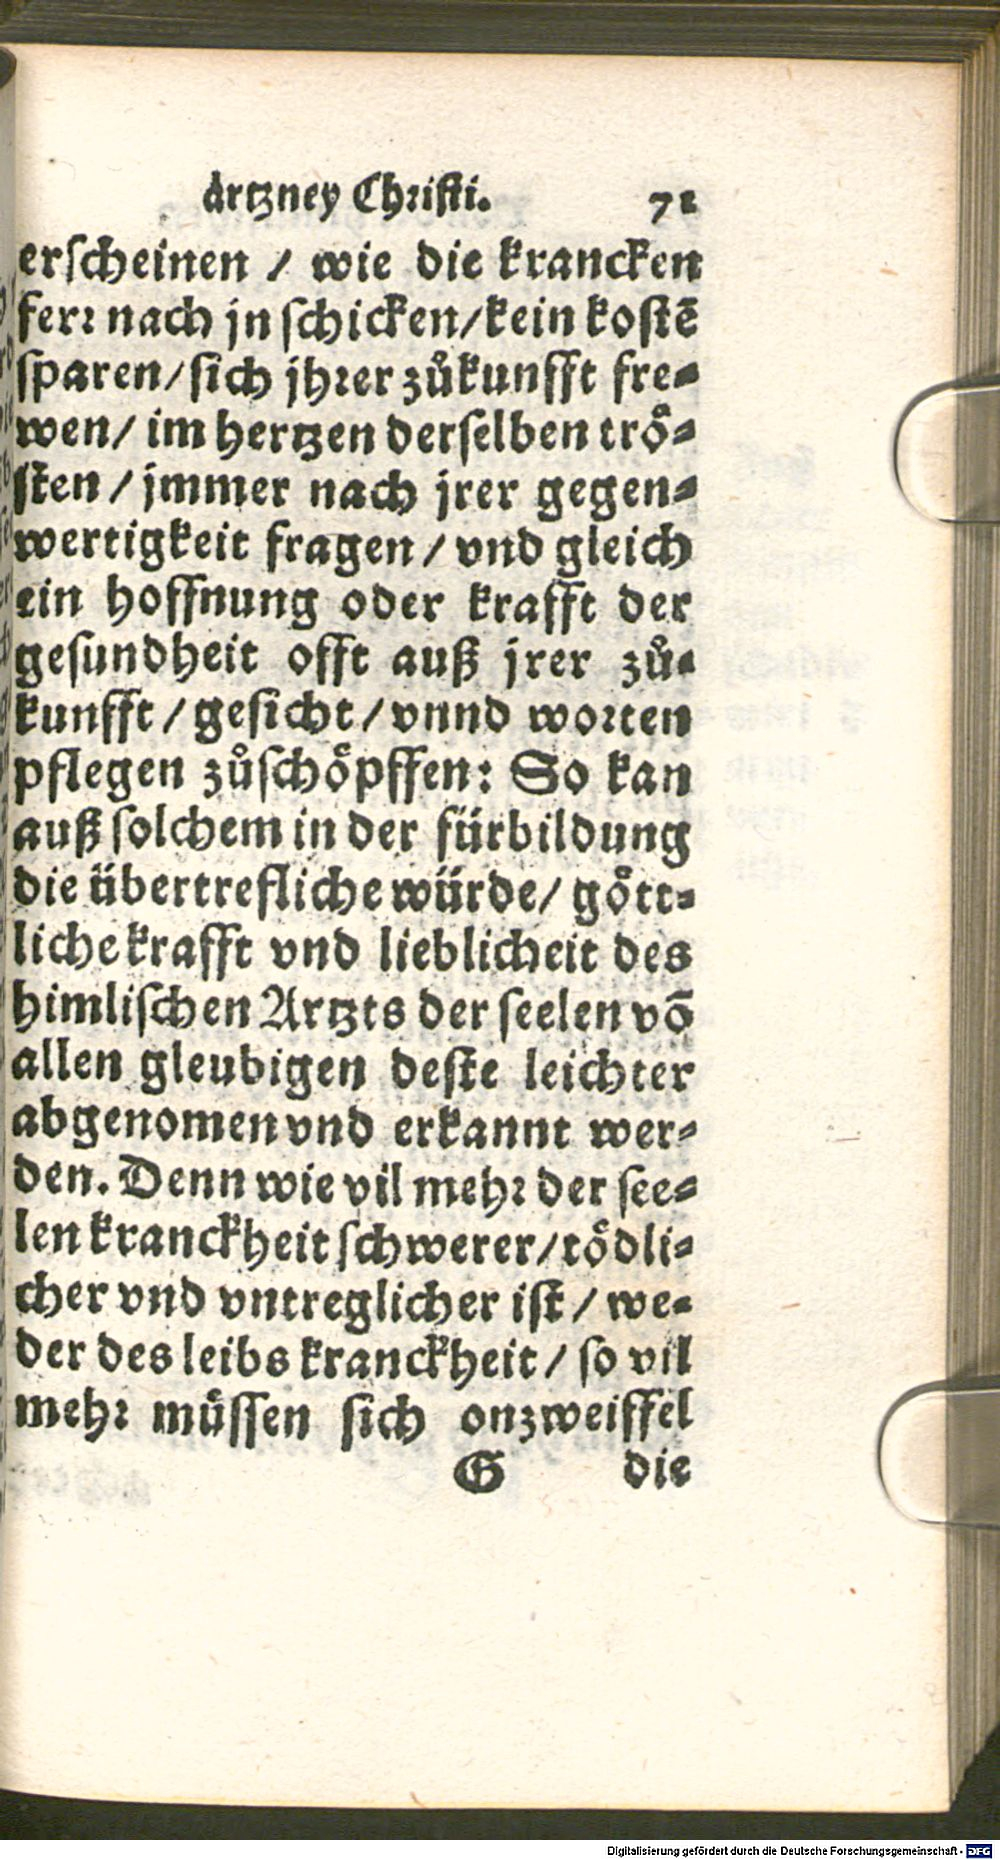 Artzney Christi. 71
erscheinen / wie die krancken
ferr nach jn schicken/kein kostē
sparen/sich jhrer zůkunfft fre⸗
wen/ im hertzen derselben trö⸗
sten / jmmer nach jrer gegen⸗
wertigkeit fragen / vnd gleich
ein hoffnung oder krafft der
gesundheit offt auß jrer zů⸗
kunfft / gesicht / vnnd worten
pflegen zůschöpffen: So kan
auß solchem in der fürbildung
die übertrefliche würde/ gött⸗
liche krafft vnd lieblicheit des
himlischen Artzts der seelen vō
allen gleubigen deste leichter
abgenomen vnd erkannt wer⸗
den. Denn wie vil mehr der see⸗
len kranckheit schwerer/tödli⸗
cher vnd vntreglicher ist / we⸗
der des leibs kranckheit / so vil
mehr müssen sich onzweiffel
G die
Digitalisierung gefördert durch die Deutsche Forschungsgemeinschaft - DFG